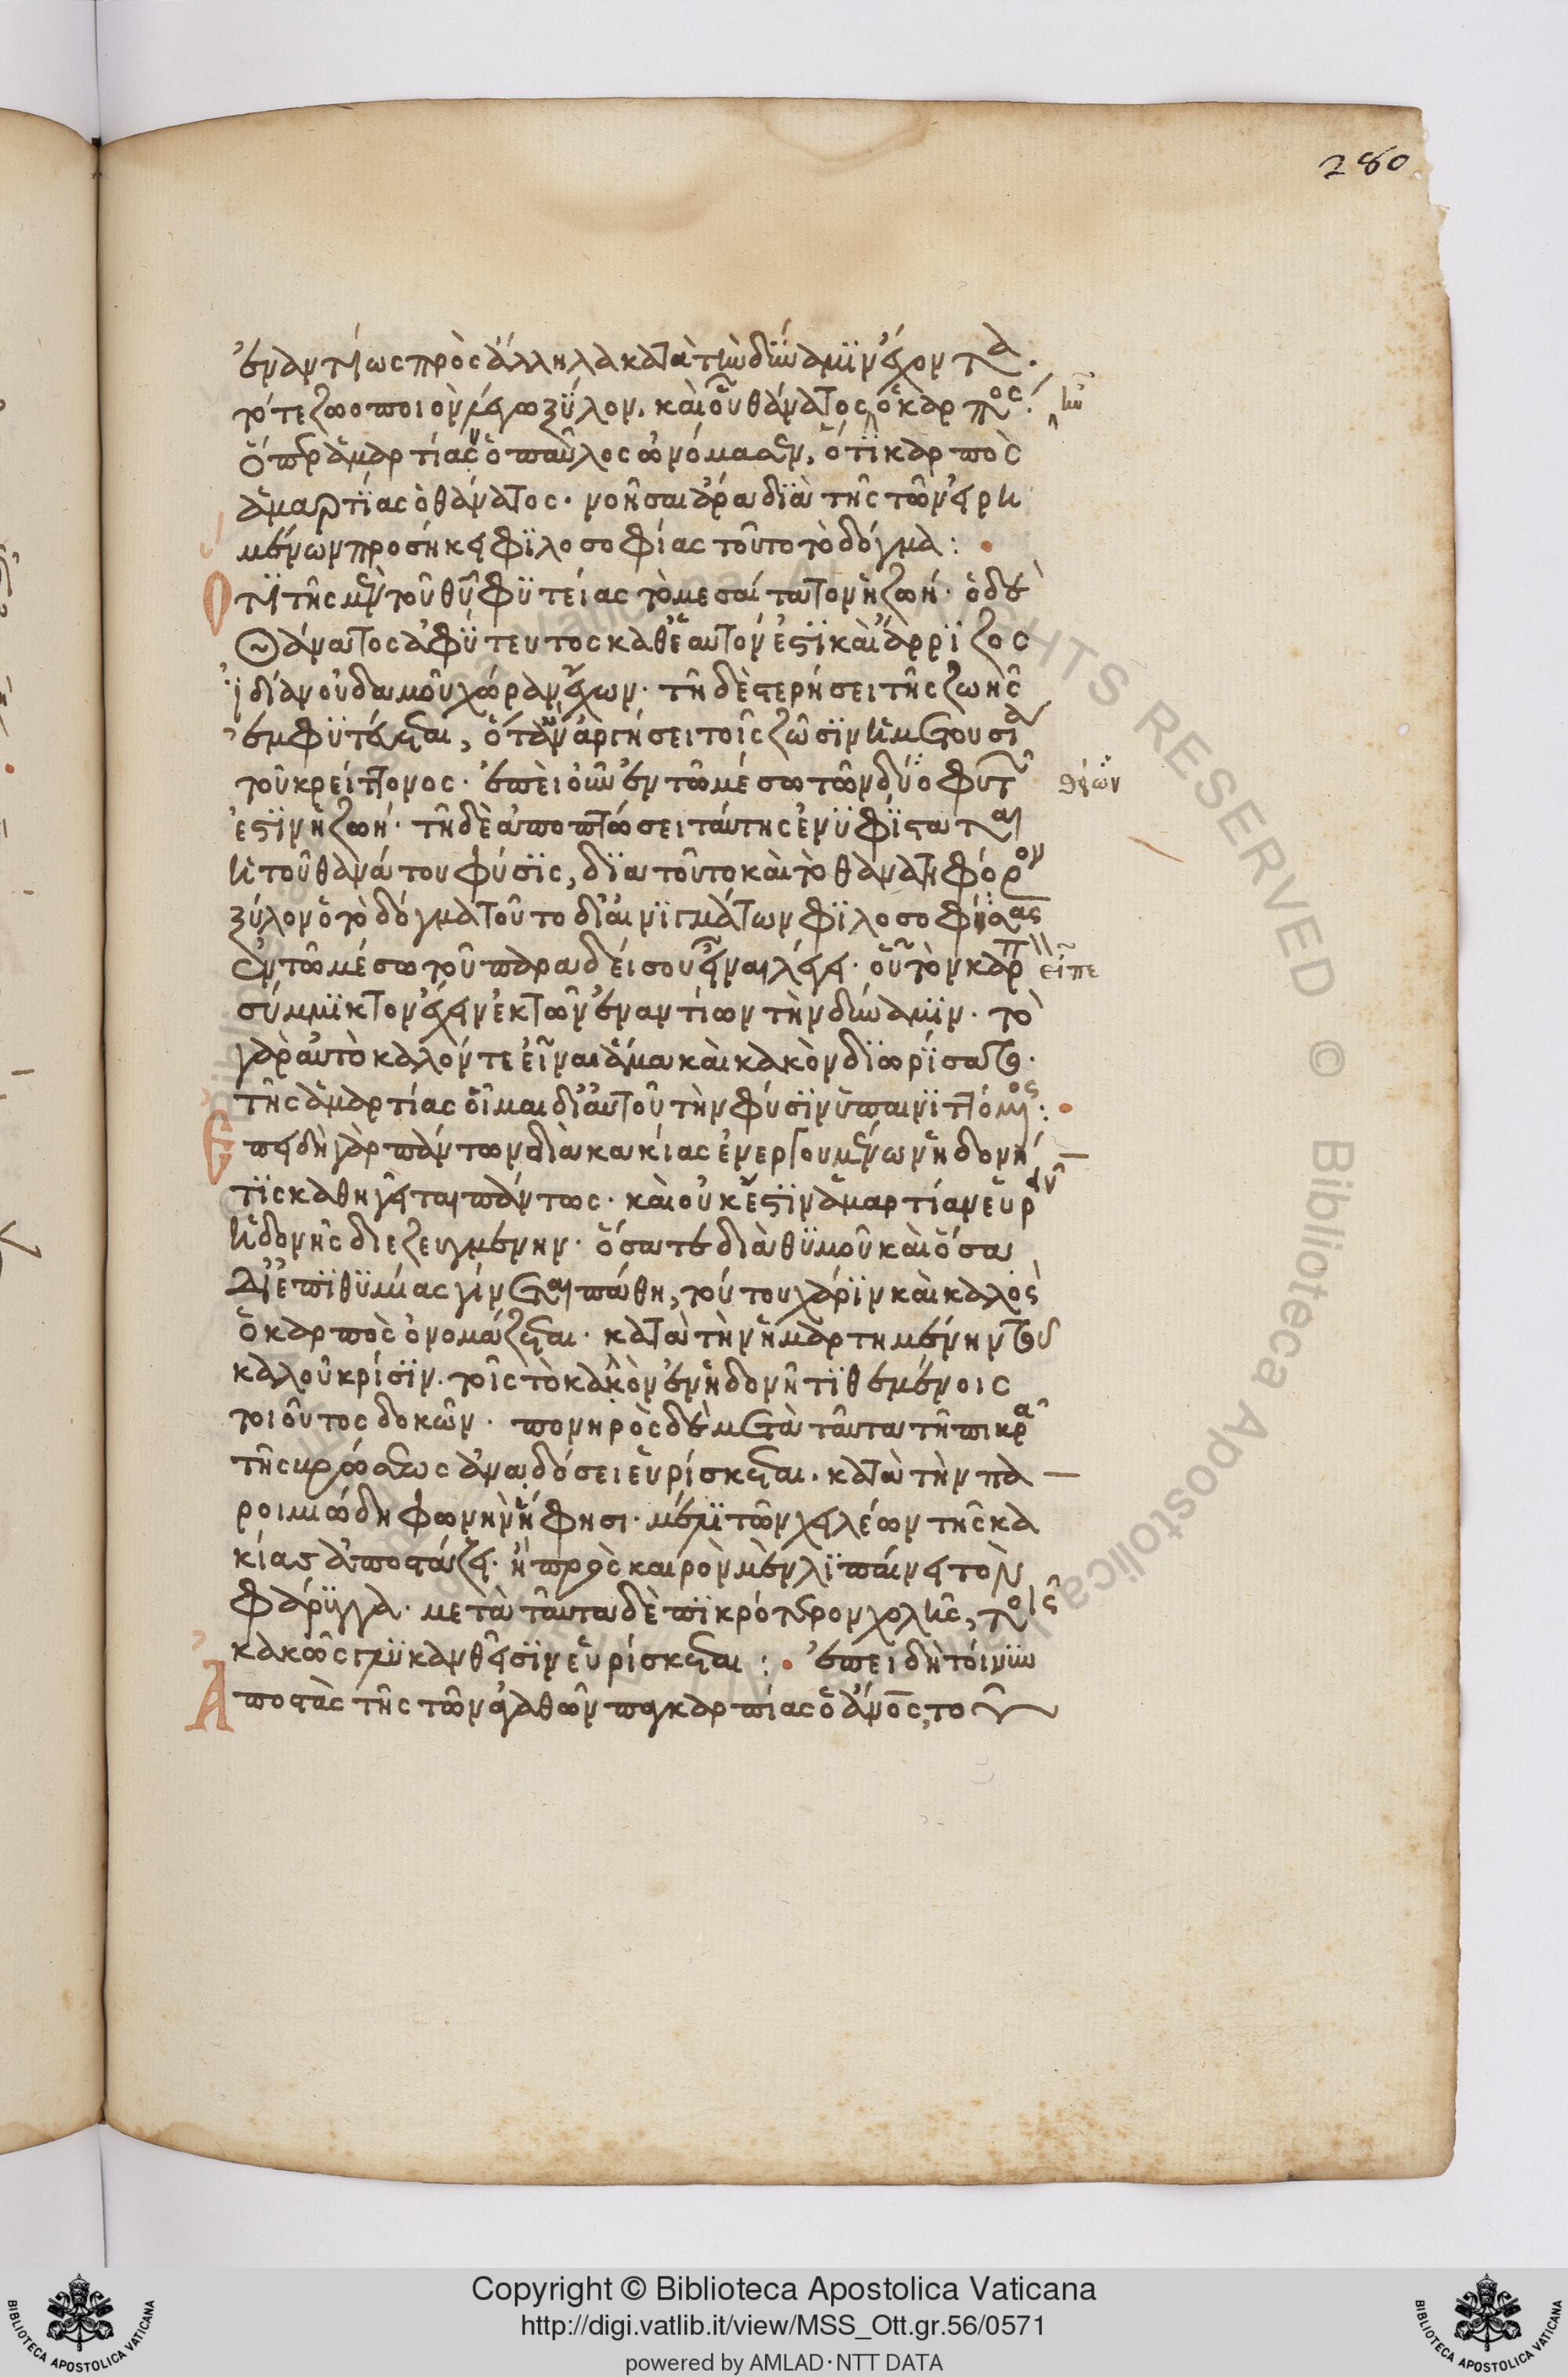 280
ἐναντίως πρὸς ἄλληλα κατὰ τὴν δύναμιν ἔχοντα.
τό τε ζωοποιὸν λέγω ξύλον. καὶ οὗ θάνατος ὁ καρπός. ἦν
ὅπερ ἁμαρτίαν ὁ παῦλος ὠνόμασεν, ὅτι καρπὸς
ἁμαρτίας ὁ θάνατος. νοῆσαι ἄρα διὰ τῆς τῶν εἰρη
μένων προσήκει φιλοσοφίας τοῦτο τὸ δόγμα:
Ὅτι τῆς μὲν τοῦ θῦ φυτείας τὸ μεσαίτατον ἡ ζωή. ὁ δὲ
Θάνατος ἀφύτευτος καθ' ἑαυτόν ἐστι καὶ ἄρριζος
ἰδίαν οὐδαμοῦ χώραν ἔχων. τῇ δὲ στερήσει τῆς ζωῆς
ἐμφυτεύεται, ὅταν ἀργήσει τοῖς ζῶσιν ἡ μετουσία
τοῦ κρείττονος. ἐπεὶ οὖν ἐν τῷ μέσῳ τῶν δύο φυτῶν θείων
ἐστὶν ἡ ζωή. τῇ δὲ ἀποπτώσει ταύτης ἐνυφίσταται
ἡ τοῦ θανάτου φύσις, διατοῦτο καὶ τὸ θανατηφόρον
ξύλον ὁ τὸ δόγμα τοῦτο δι' αἰνιγμάτων φιλοσοφήσας
ἐν τῷ μέσῳ τοῦ παραδείσου εἶναι λέγει. οὗ τὸν καρπ εἶπε
σύμμικτον ἔχειν ἐκ τῶν ἐναντίων τὴν δύναμιν. τὸ
γὰρ αὐτὸ καλόν τε εἶναι ἅμα καὶ κακὸν διωρίσατο.
τῆς ἁμαρτίας οἶμαι δι' αὐτοῦ τὴν φύσιν ὑπαινιττόμενος:
Ἐπειδὴ γὰρ πάντων διὰ κακίας ἐνεργουμένων ἡδονή
τις καθηγεῖται πάντως. καὶ οὐκ ἔστιν ἁμαρτίαν εὑρεῖν
ἡδονῆς διεζευγμένην. ὅσα τε διὰ θυμοῦ καὶ ὅσα
δι' ἐπιθυμίας γίνεται πάθη, τούτου χάριν καὶ καλὸς
ὁ καρπὸς ὀνομάζεται. κατὰ τὴν ἡμαρτημένην τοῦ
καλοῦ κρίσιν. τοῖς τὸ καλὸν ἐν ἡδονῇ τιθεμένοις
τοιοῦτος δοκῶν. πονηρὸς δὲ μετὰ ταῦτα τῇ πικρᾷ
τῆς βρώσεως ἀναδόσει εὑρίσκεται. κατὰ τὴν πα
ροιμιώδη φωνὴν ἥ φησι. μέλι τῶν χειλέων τῆς κα
κίας ἀποστάζει. ἣ πρὸς καιρὸν μὲν λιπαίνει τὸν
φάρυγγα. μετὰ ταῦτα δὲ πικρότερον χολῆς, τοῖς
κακῶς γλυκανθεῖσιν εὑρίσκεται: ἐπειδὴ τοίνυν
Ἀποστὰς τῆς τῶν ἀγαθῶν παγκαρπίας ὁ ἄνος, τοῦ
Copyright © Biblioteca Apostolica Vaticana
http://digi.vatlib.it/view/MSS_Ott.gr.56/0571
powered by AMLAD·NTT DATA